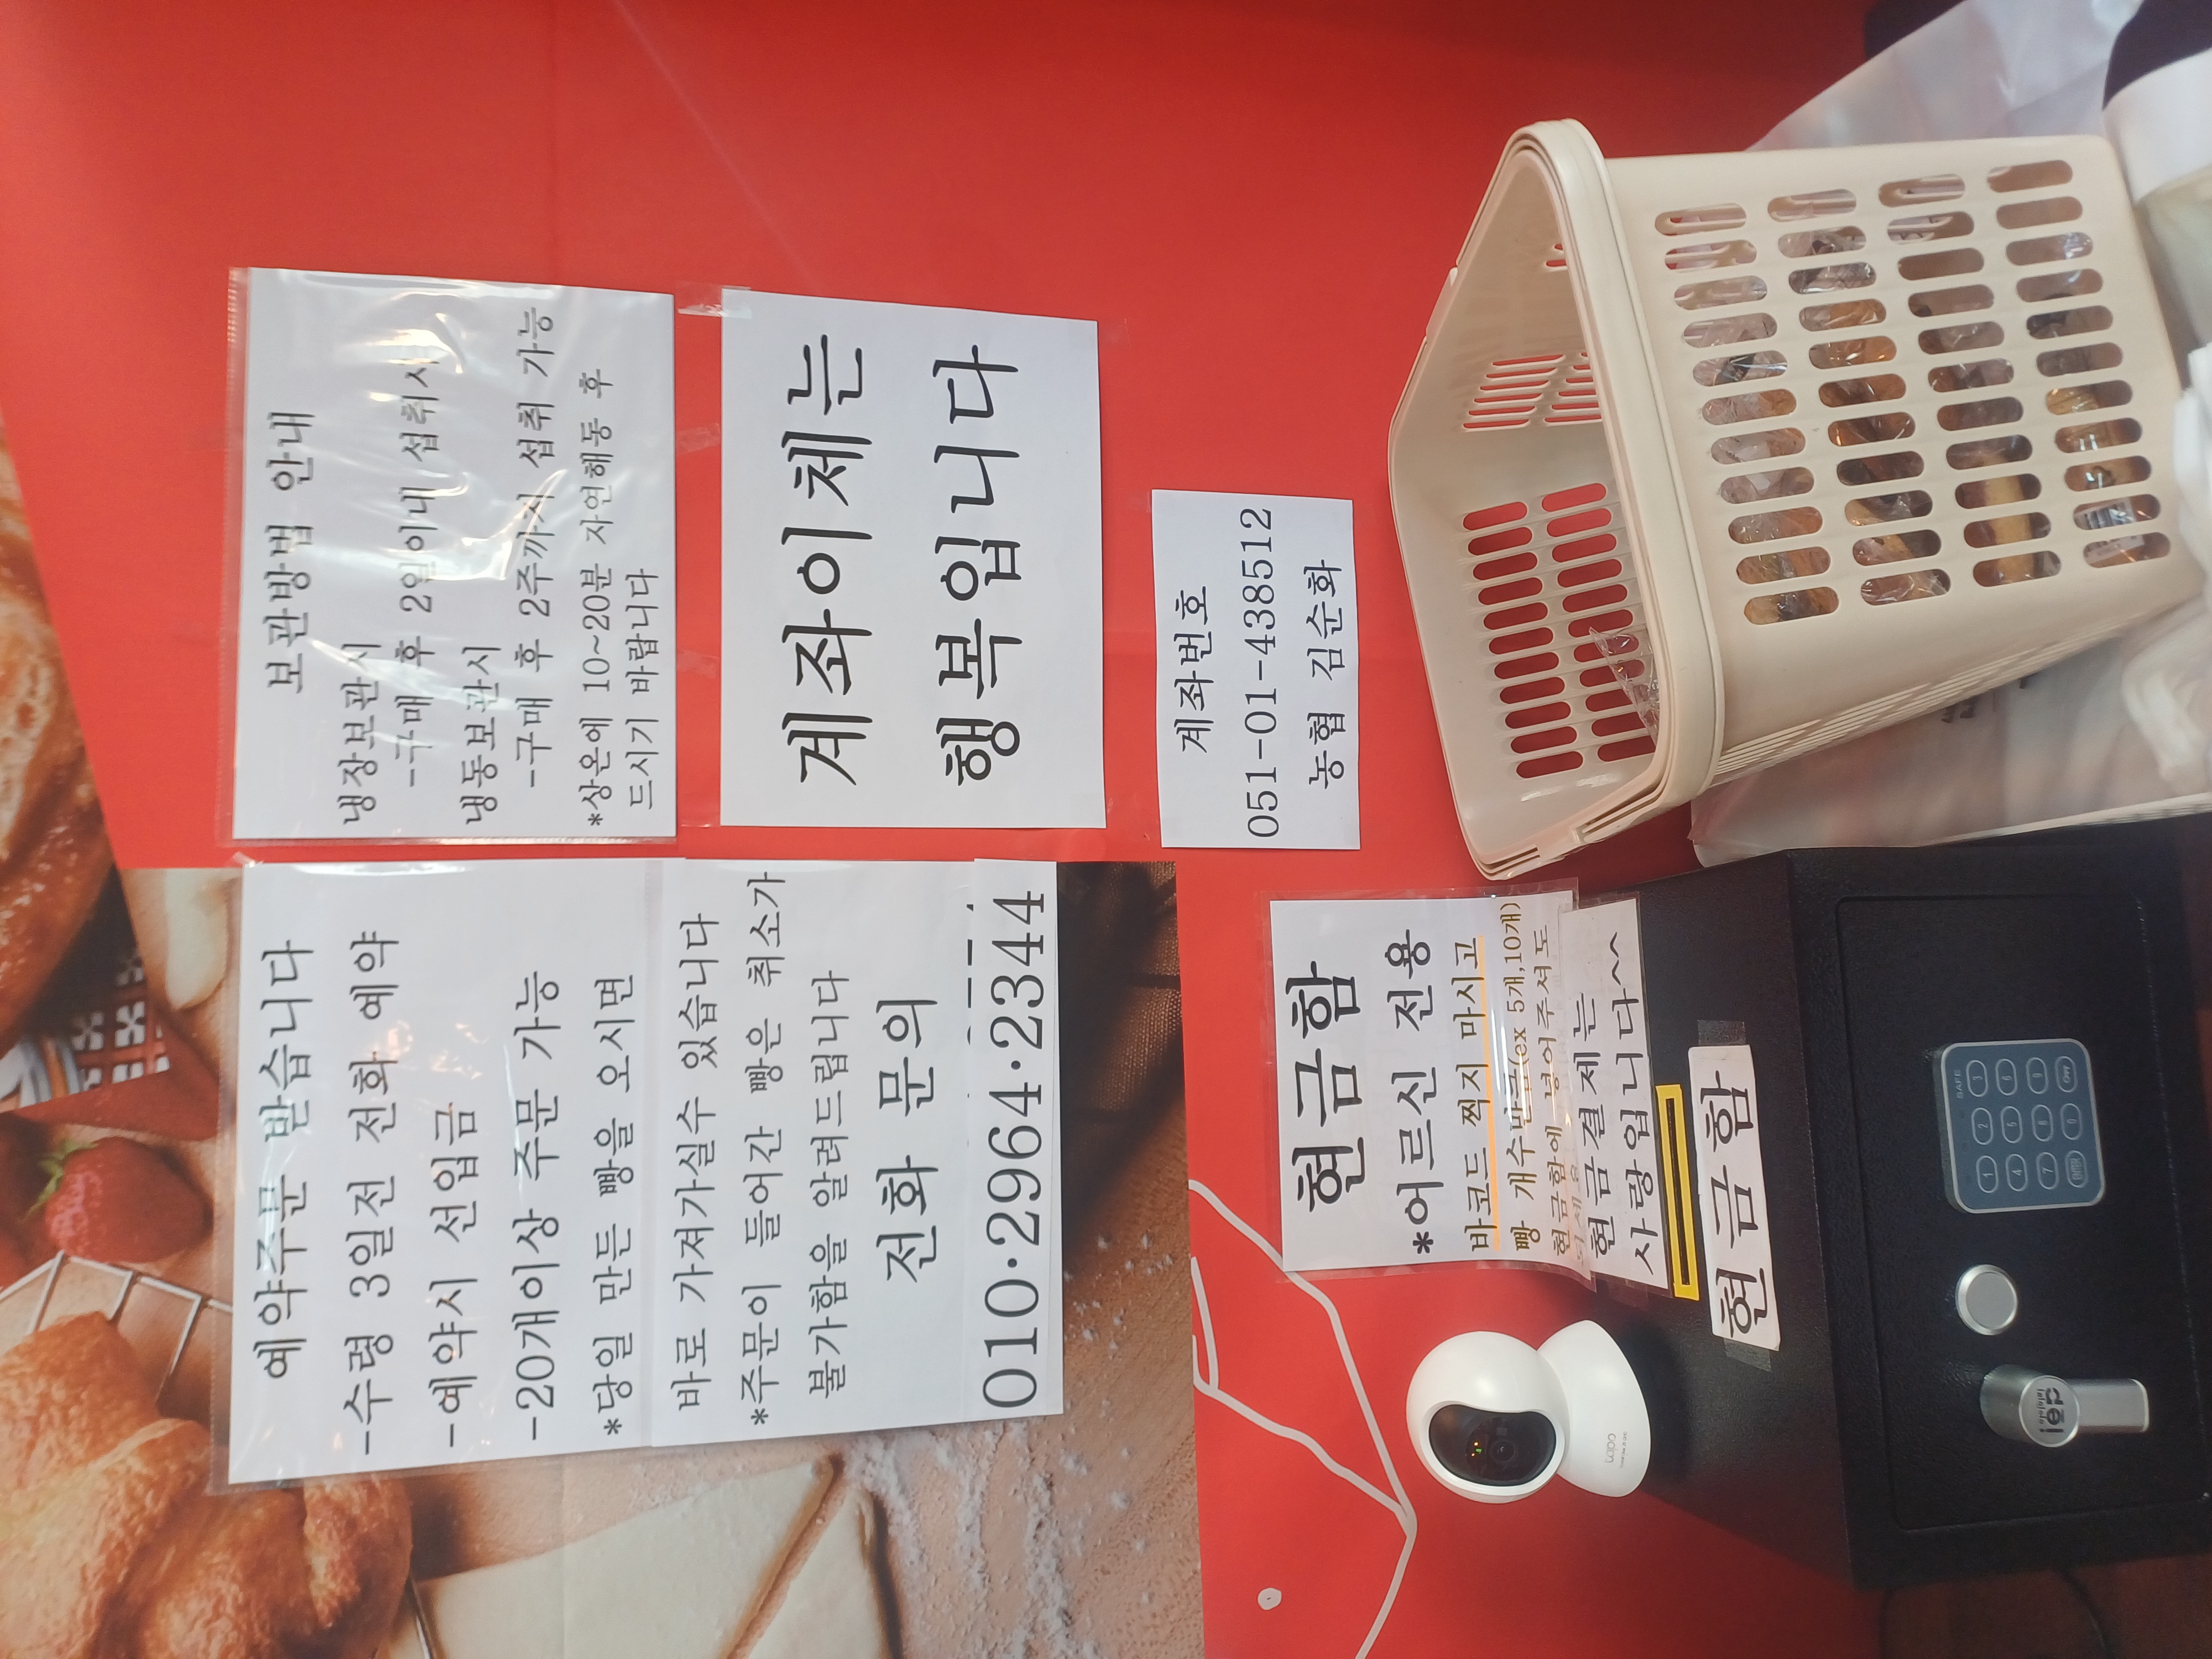 예약주문 받습니다
-수령 3일전 전화 예약
-예약시 선입금
-20개이상 주문 가능
*당일 만든 빵을 오시면
바로 가져가실수 있습니다
*주문이 들어간 빵은 취소가
불가함을 알려드립니다
전화 문의
010·2964·2344
보관방법 안내
냉장보관시
-구매 후 2일이내 섭취시
냉동보관시
-구매 후 2주까지 섭취 가능
*상온에 10~20분 자연해동 후
드시기 바랍니다
계좌이체는
행복입니다
계좌번호
051-01-438512
농협 김순화
현금함
*어르신 전용
바코드 찍지 마시고
빵 개수만큼(ex 5개,10개)
현금함에 넣어주셔도
되세요
현금결제는
사랑입니다^^
현금함
tapo
SAFE
1 2 3
4 5 6
7 8 9
ENTER 0
iep